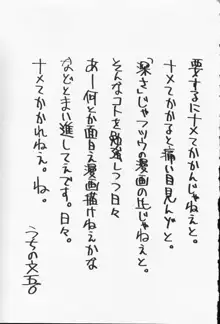 要するにナメてかかんじゃねえと。
ナメてかかると痛い目見んゾと。
「深さ」じゃフツウの漫画の比じゃねえと。
そんなコトを勉強しつつ日々
あー何とか面白え漫画描けねえかな
などとまい進してえです。日々。
ナメてかかれねえ。ね。
うちの文吾